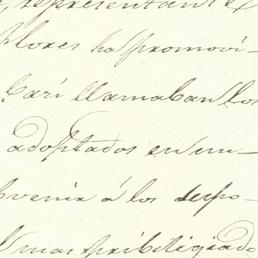 representant
Flores ha promovi-
Cari llamaban los
adoptados en un-
venir á los depo-
mas pribilegiado